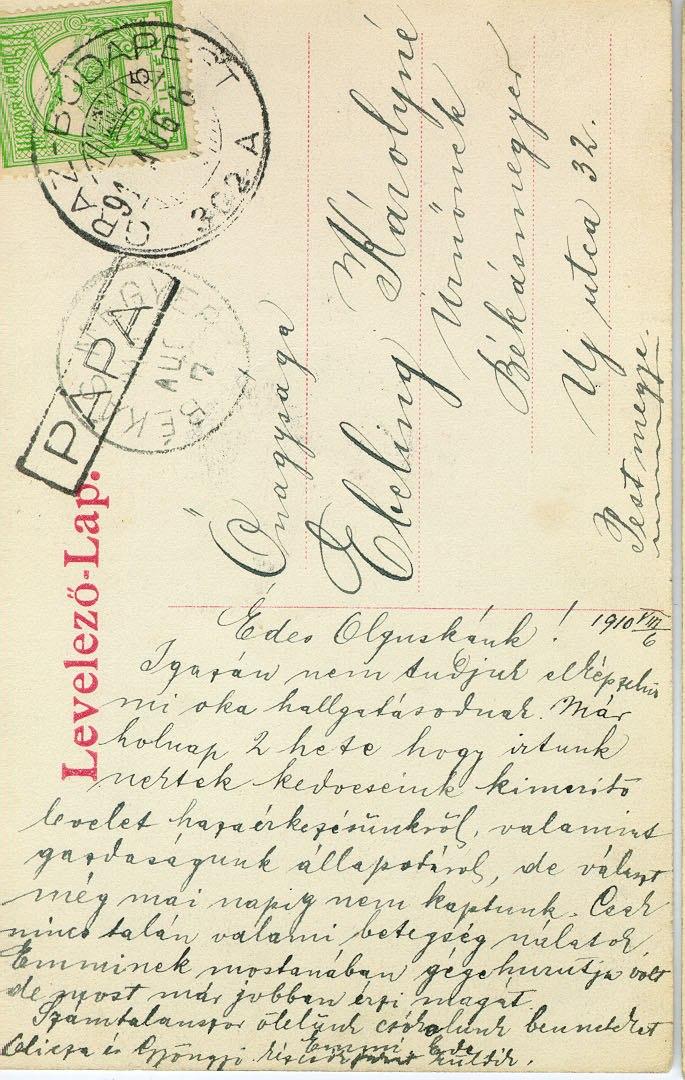 MAGYAR KIR. POSTA
5
FILLÉR
GRAZ-BUDAPEST
91 AUG 6
302 A
BÉKÁSMEGYER
AUG 7
PÁPA
Levelező-Lap.
Őnagysága
Ebeling Károlyné
Úrnőnek
Békásmegyer
Uj utca 32.
Pest megye.
Édes Olguskánk! 1910 VIII/6
Igazán nem tudjuk elképzelni
mi oka hallgatásodnak. Már
holnap 2 hete hogy irtunk
nektek kedveseink kimeritő
levelet hazaérkezésünkről, valamint
gazdaságunk állapotáról, de választ
még mai napig nem kaptunk. Csak
nincs talán valami betegség nálatok
Emminek mostanában gégehurutja volt
de most már jobban érzi magát.
Számtalanszor ölelünk csókolunk benneteket
Emmi Ede
és Gyöngyi küldik.